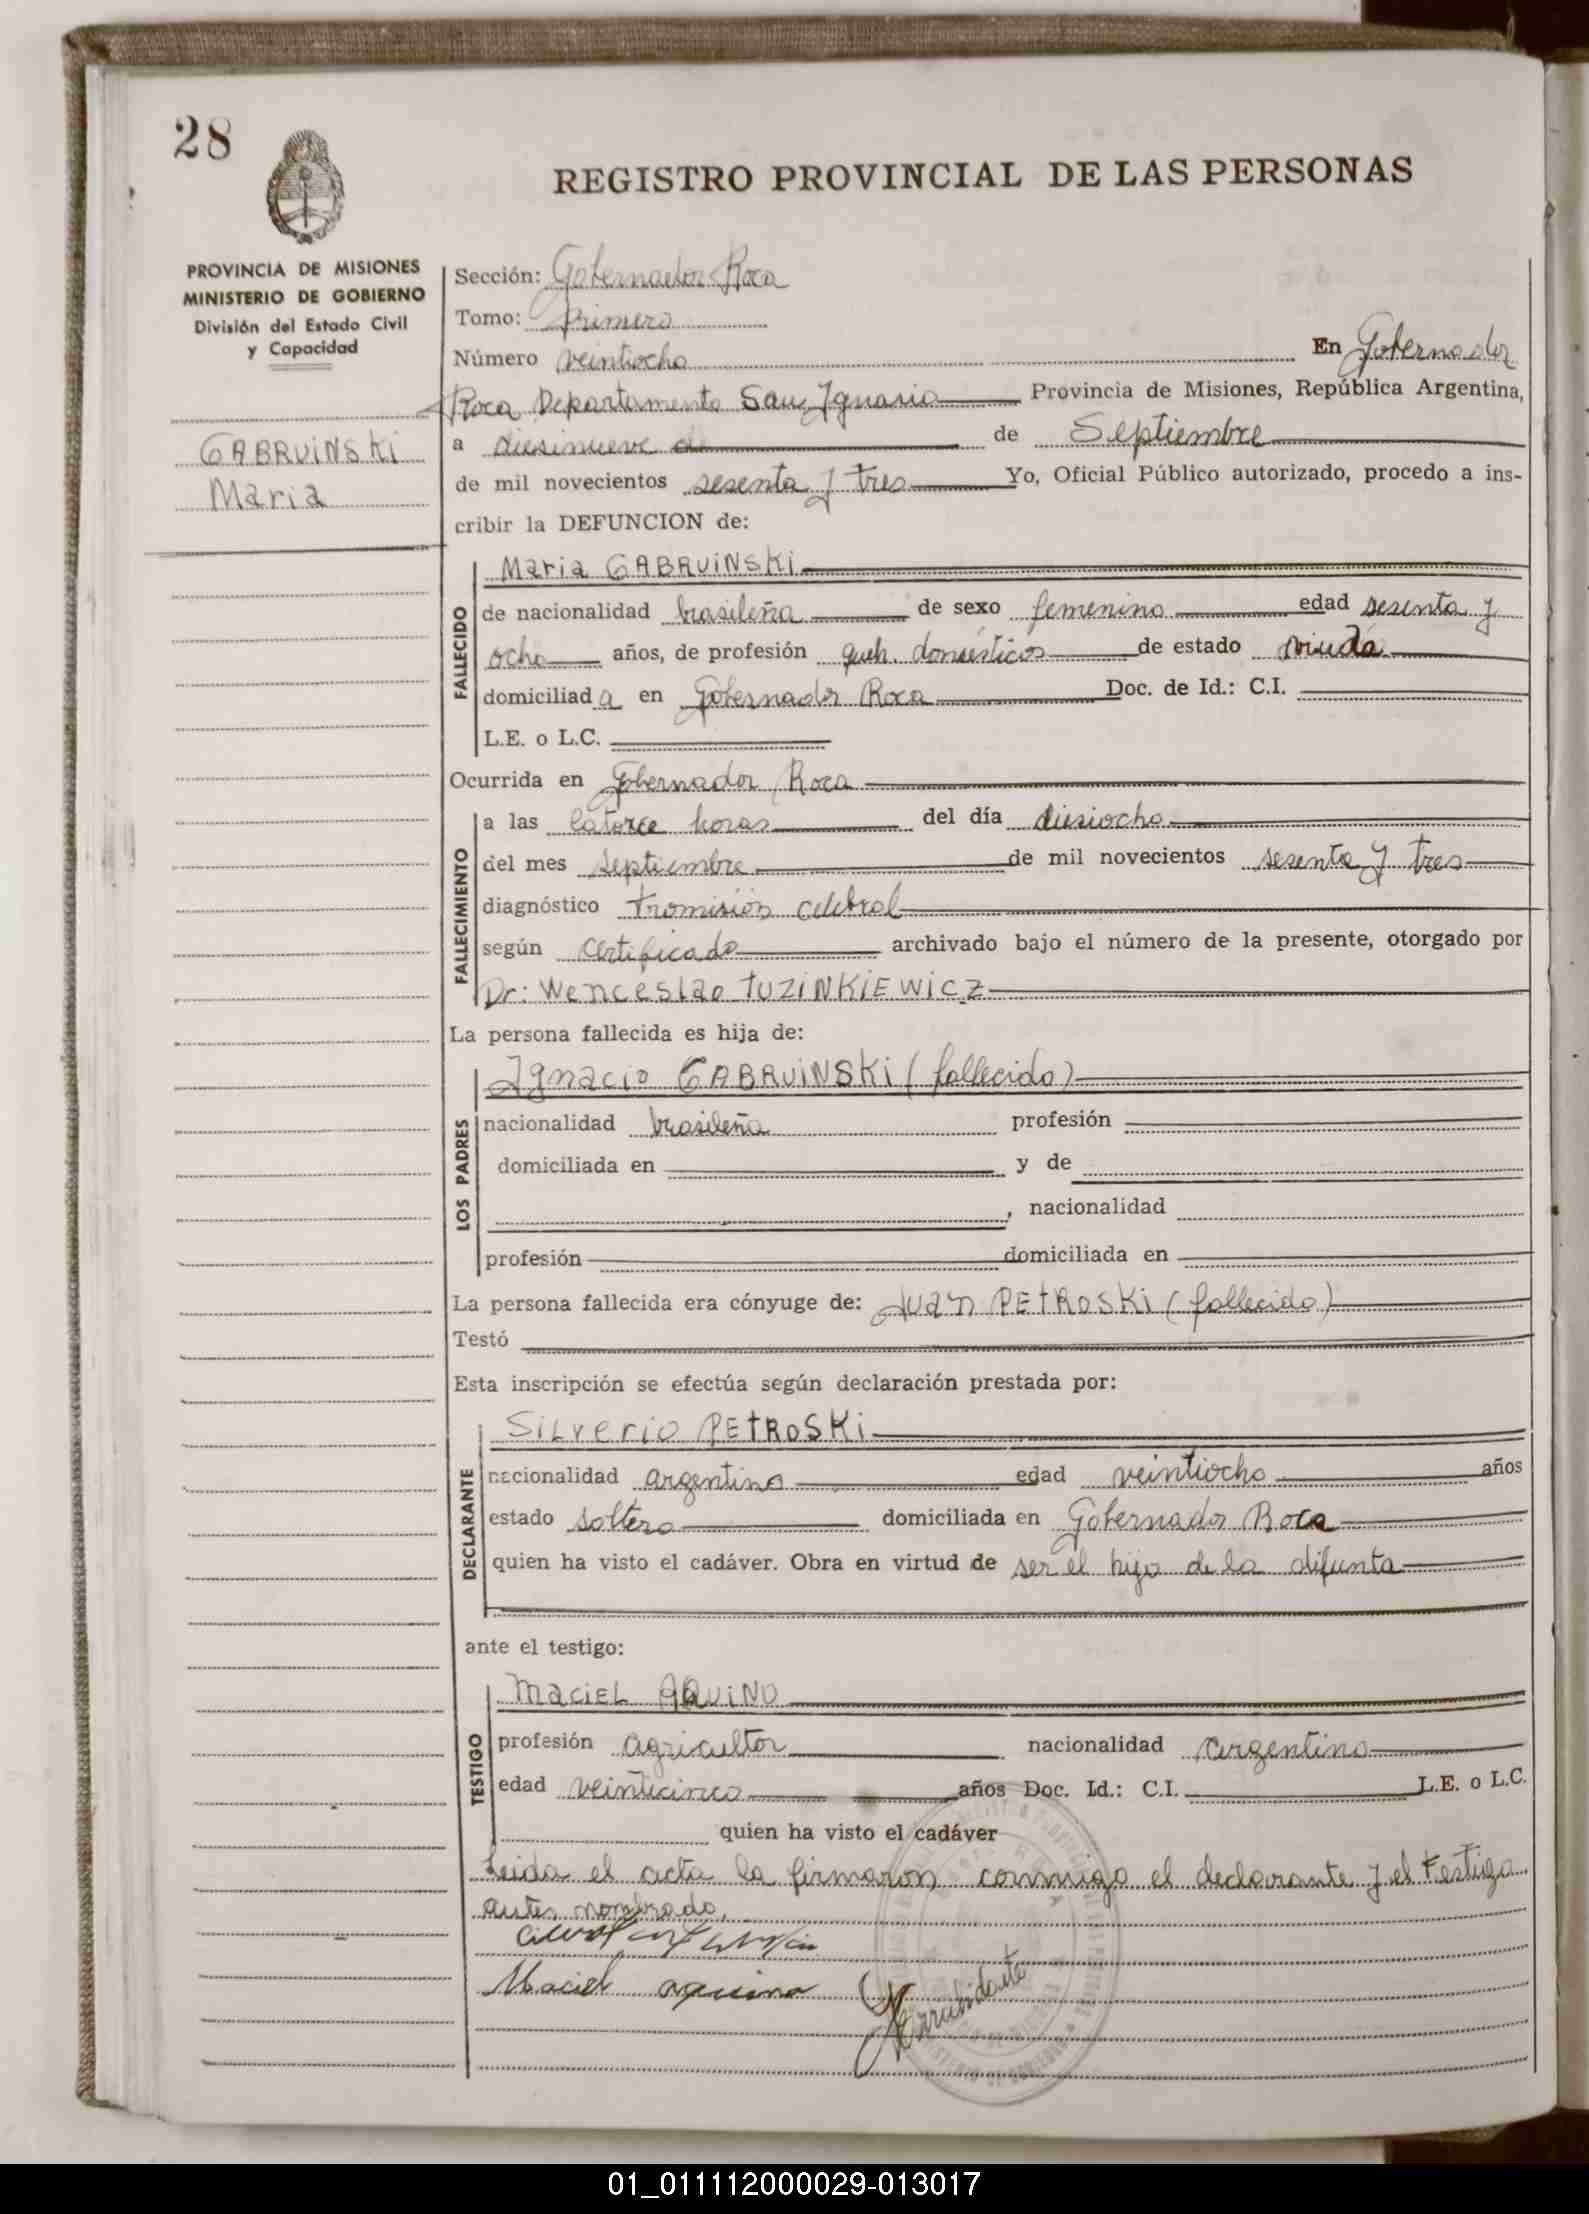 28
REGISTRO PROVINCIAL DE LAS PERSONAS
PROVINCIA DE MISIONES
MINISTERIO DE GOBIERNO
División del Estado Civil
y Capacidad
GABRUiNSKi
Maria
Sección: Gobernador Roca
Tomo: Primero
Número veintiocho En Gobernador
Roca Departamento San Ygnasio Provincia de Misiones, República Argentina,
a diesinueve de de Septiembre
de mil novecientos sesenta y tres Yo, Oficial Público autorizado, procedo a ins-
cribir la DEFUNCION de:
FALLECIDO
Maria GABRUiNSKi
de nacionalidad brasileña de sexo femenino edad sesenta y
ocho años, de profesión queh. domésticos de estado viuda
domiciliada en Gobernador Roca Doc. de Id.: C.I.
L.E. o L.C.
Ocurrida en Gobernador Roca
FALLECIMIENTO
a las catorce horas del día diesiocho
del mes septiembre de mil novecientos sesenta y tres
diagnóstico tromisión celebral
según certificado archivado bajo el número de la presente, otorgado por
Dr: Wenceslao TUZiNKiEWiCZ
La persona fallecida es hija de:
LOS PADRES
Ignacio GABRUiNSKi (fallecido)
nacionalidad brasileña profesión
domiciliada en y de
, nacionalidad
profesión domiciliada en
La persona fallecida era cónyuge de: Juan PEtROSKi (fallecido)
Testó
Esta inscripción se efectúa según declaración prestada por:
DECLARANTE
SiLverio PEtROSKi
nacionalidad argentino edad veintiocho años
estado soltero domiciliada en Gobernador Roca
quien ha visto el cadáver. Obra en virtud de ser el hijo de la difunta
ante el testigo:
TESTIGO
MaciEL AQUiNO
profesión agricultor nacionalidad argentino
edad veinticinco años Doc. Id.: C.I. L.E. o L.C.
quien ha visto el cadáver
Leida el acta la firmaron conmigo el declarante y el testigo
antes nombrado,
Maciel aquino
01_011112000029-013017